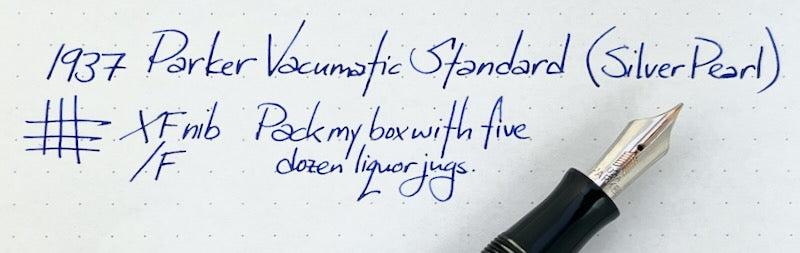 1937 Parker Vacumatic Standard (Silver Pearl)
XF nib Pack my box with five
/F dozen liquor jugs.